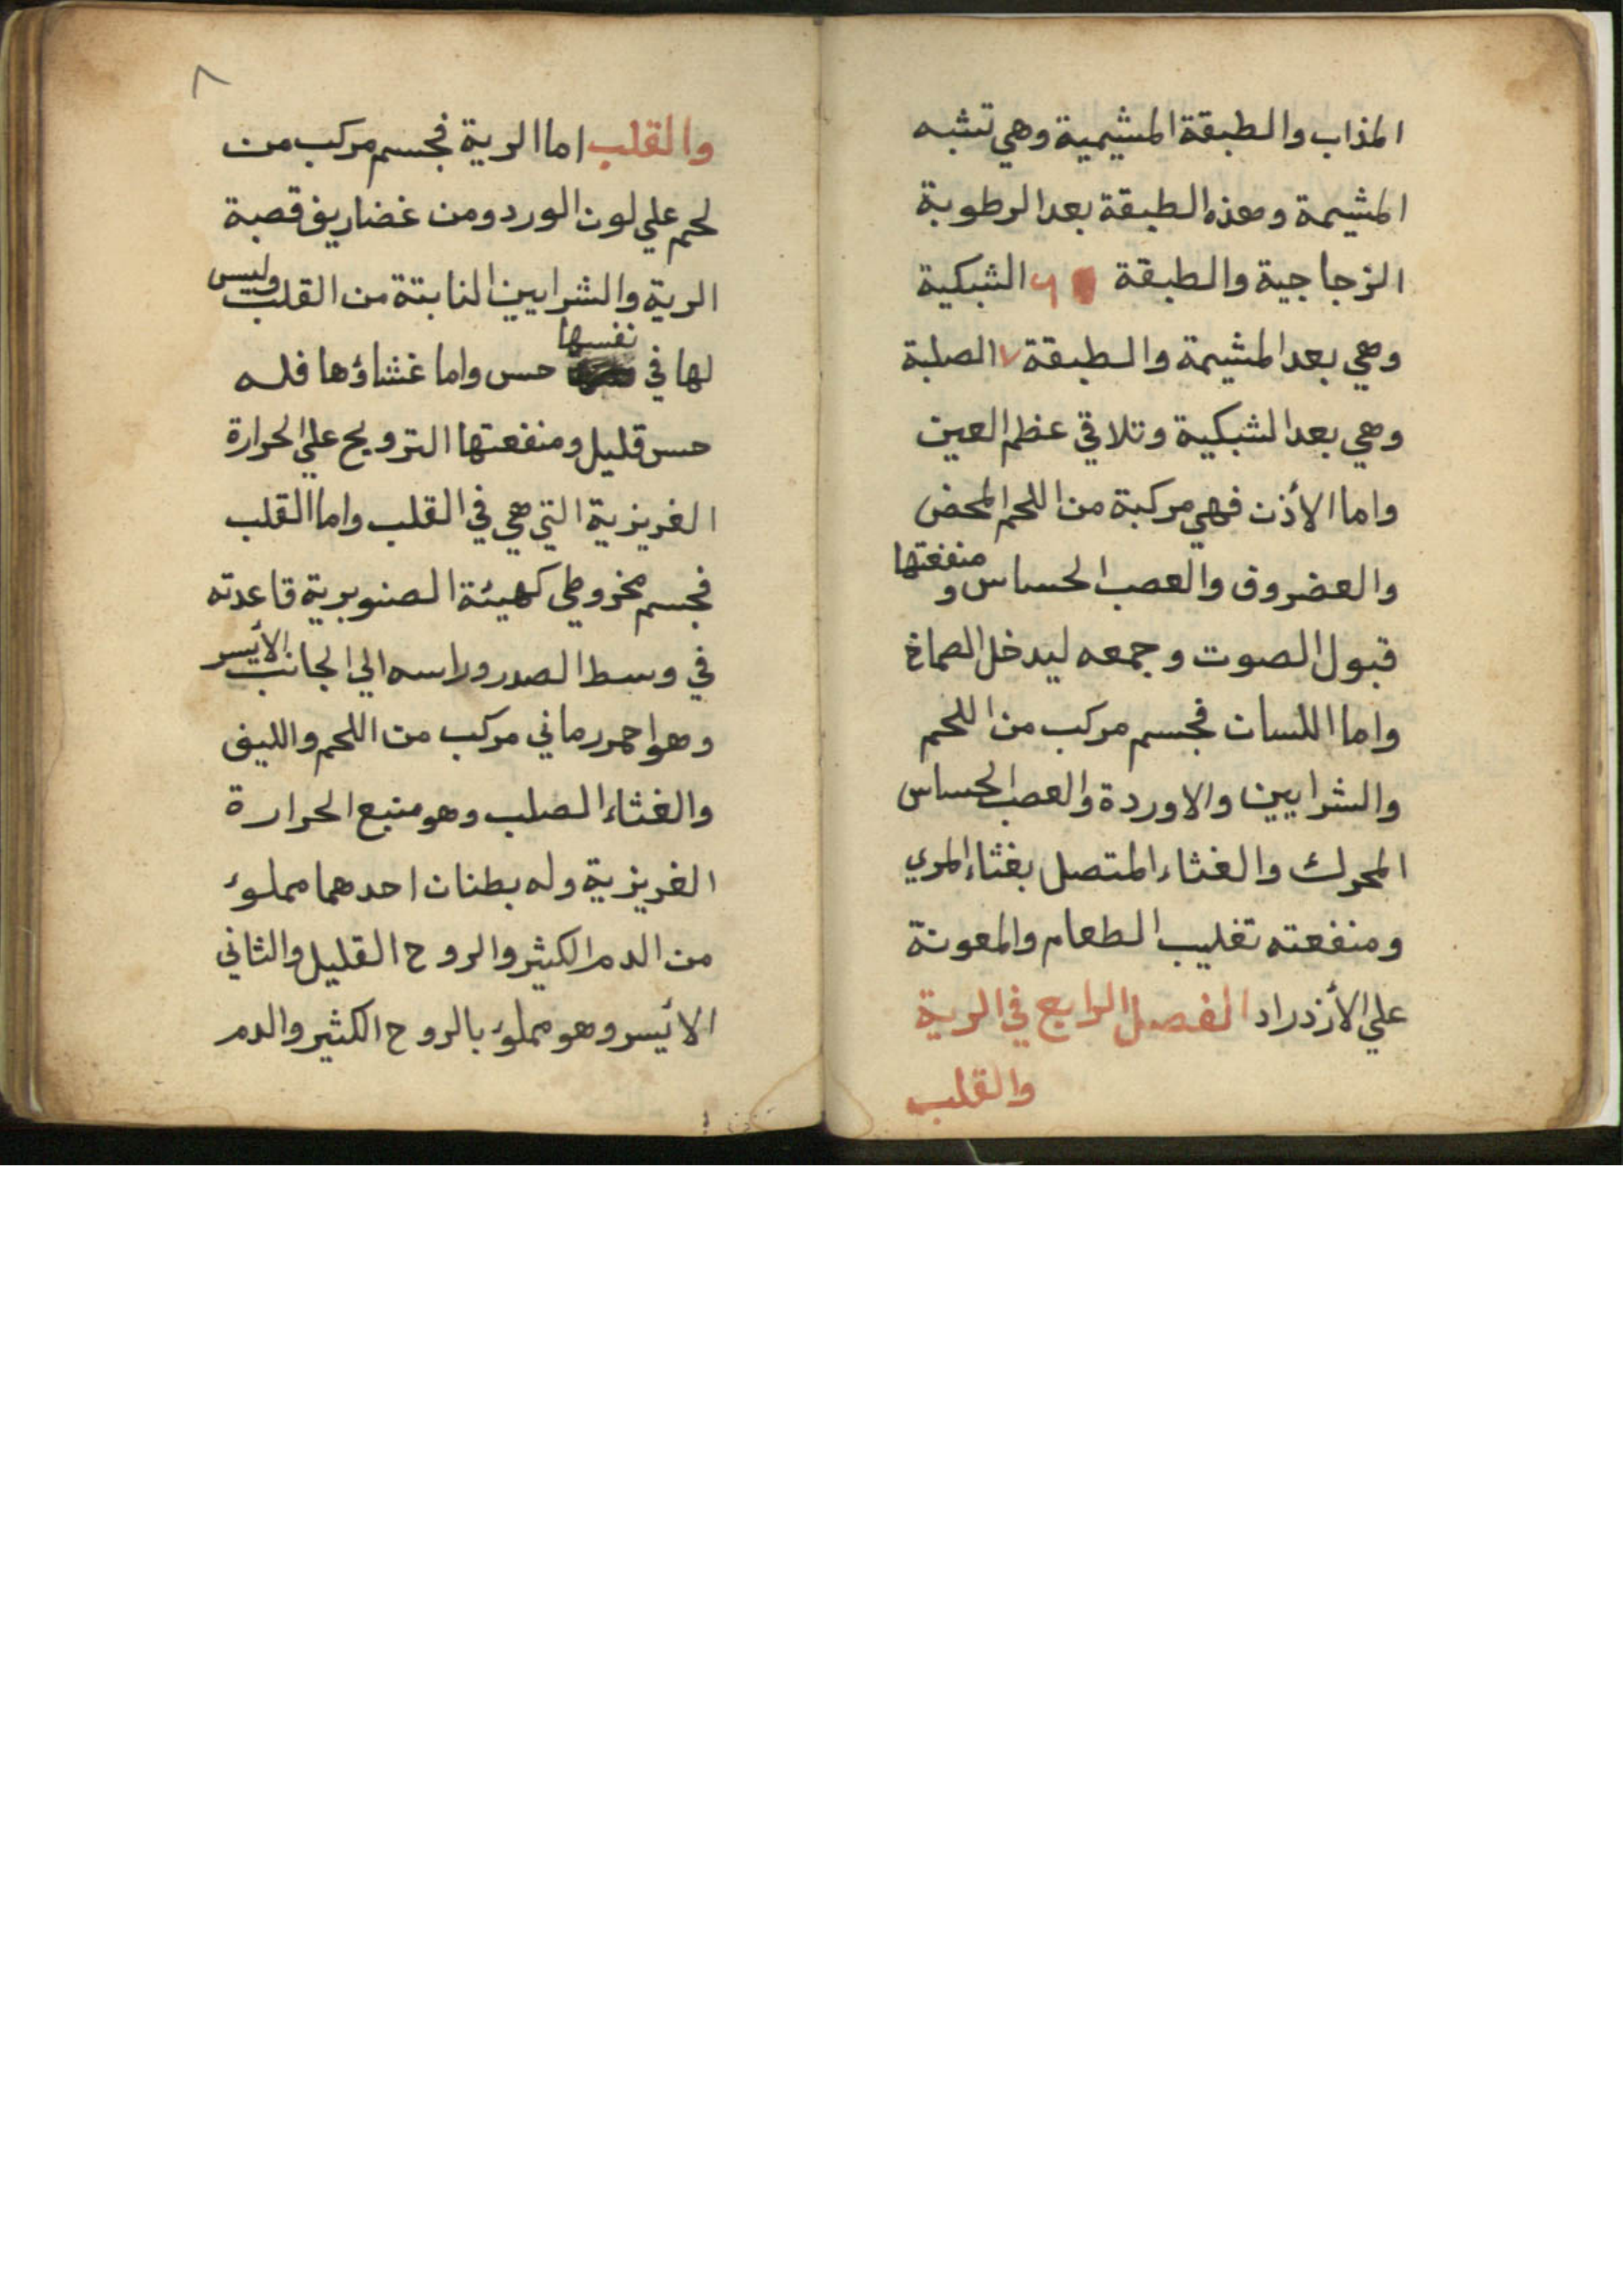 المذاب والطبقة المشيمية وهي تشبه
المشيمة وهذه الطبقة بعد الرطوبة
الزجاجية والطبقة ٦ الشبكية
وهي بعد المشيمة والطبقة ٧ الصلبة
وهي بعد الشبكية وتلاقي عظم العين
واما الأذن فهي مركبة من اللحم المحض
والعضروف والعصب الحساس و منفعتها
قبول الصوت وجمعه ليدخل الصماخ
واما اللسان فجسم مركب من اللحم
والشرايين والاوردة والعصب الحساس
المحرك والغشاء المتصل بغشاء المري
ومنفعته تغليب الطعام والمعونة
علي الأزدراد الفصل الرابع في الرية
والقلب
٨
والقلب اما الرية فجسم مركب من
لحم علي لون الورد ومن غضاريف قصبة
الرية والشرايين النابتة من القلب وليس
لها في نفسها حس واما غشاؤها فله
حس قليل ومنفعتها الترويح علي الحرارة
الغريزية التي هي في القلب واما القلب
فجسم مخروطي كهيئة الصنوبرية قاعدته
في وسط الصدر وراسه الي الجانب الأيسر
وهو احمر رماني مركب من اللحم والليف
والغشاء الصلب وهو منبع الحرارة
الغريزية وله بطنان احدهما مملوء
من الدم الكثير والروح القليل والثاني
الأيسر وهو مملوء بالروح الكثير والدم